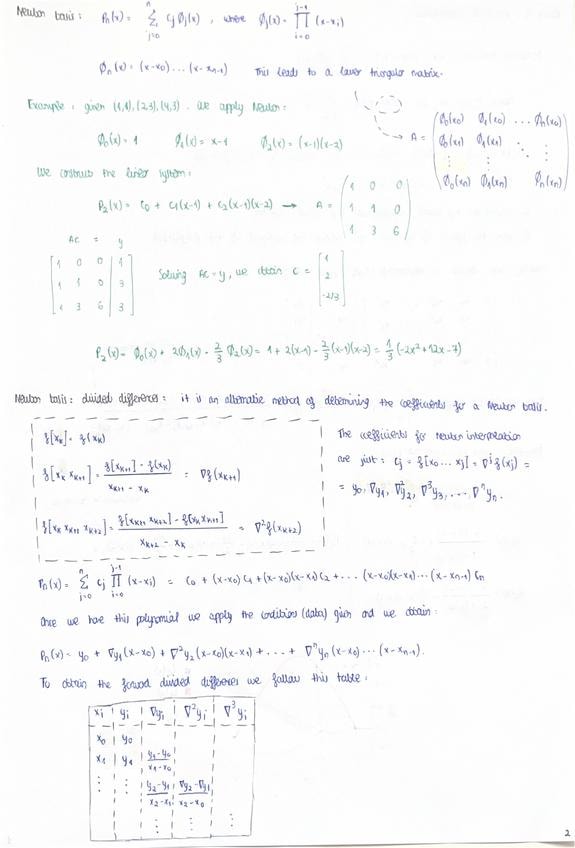 Newton basis: Pn(x) = Σ_{j=0}^{n} cj Øj(x), where Øj(x) = ∏_{i=0}^{j-1} (x-xi)
Øn(x) = (x-x0) ... (x-xn-1) This leads to a lower triangular matrix.
Example: given (1,1), (2,3), (4,3). We apply Newton:
Ø0(x) = 1 Ø1(x) = x-1 Ø2(x) = (x-1)(x-2)
A = ( Ø0(x0) Ø1(x0) ... Øn(x0)
Ø0(x1) Ø1(x1) ⋱ ⋮
⋮ ⋮ ⋱ ⋮
Ø0(xn) Ø1(xn) Øn(xn) )
We construct the linear system:
P2(x) = c0 + c1(x-1) + c2(x-1)(x-2) → A = ( 1 0 0
1 1 0
1 3 6 )
Ac = y
[ 1 0 0 | 1
1 1 0 | 3
1 3 6 | 3 ]
Solving Ac = y, we obtain c = [ 1
2
-2/3 ]
P2(x) = Ø0(x) + 2Ø1(x) - 2/3 Ø2(x) = 1 + 2(x-1) - 2/3 (x-1)(x-2) = 1/3 (-2x² + 12x - 7)
Newton basis: divided differences: it is an alternative method of determining the coefficients for a Newton basis.
f[xk] = f(xk)
f[xk xk+1] = (f[xk+1] - f(xk)) / (xk+1 - xk) = ∇f(xk+1)
f[xk xk+1 xk+2] = (f[xk+1 xk+2] - f[xk xk+1]) / (xk+2 - xk) = ∇²f(xk+2)
The coefficients for Newton interpolation
are just: cj = f[x0 ... xj] = ∇^j f(xj) =
= y0, ∇y1, ∇²y2, ∇³y3, ..., ∇ⁿyn.
Pn(x) = Σ_{j=0}^{n} cj ∏_{i=0}^{j-1} (x-xi) = c0 + (x-x0) c1 + (x-x0)(x-x1) c2 + ... (x-x0)(x-x1) ... (x-xn-1) cn
Once we have this polynomial we apply the conditions (data) given and we obtain:
Pn(x) = y0 + ∇y1(x-x0) + ∇²y2(x-x0)(x-x1) + ... + ∇ⁿyn(x-x0) ... (x-xn-1).
To obtain the forward divided differences we follow this table:
xi yi ∇yi ∇²yi ∇³yi
x0 y0
x1 y1 (y1-y0)/(x1-x0)
⋮ ⋮ (y2-y1)/(x2-x1) (∇y2-∇y1)/(x2-x0)
⋮ ⋮ ⋮
2